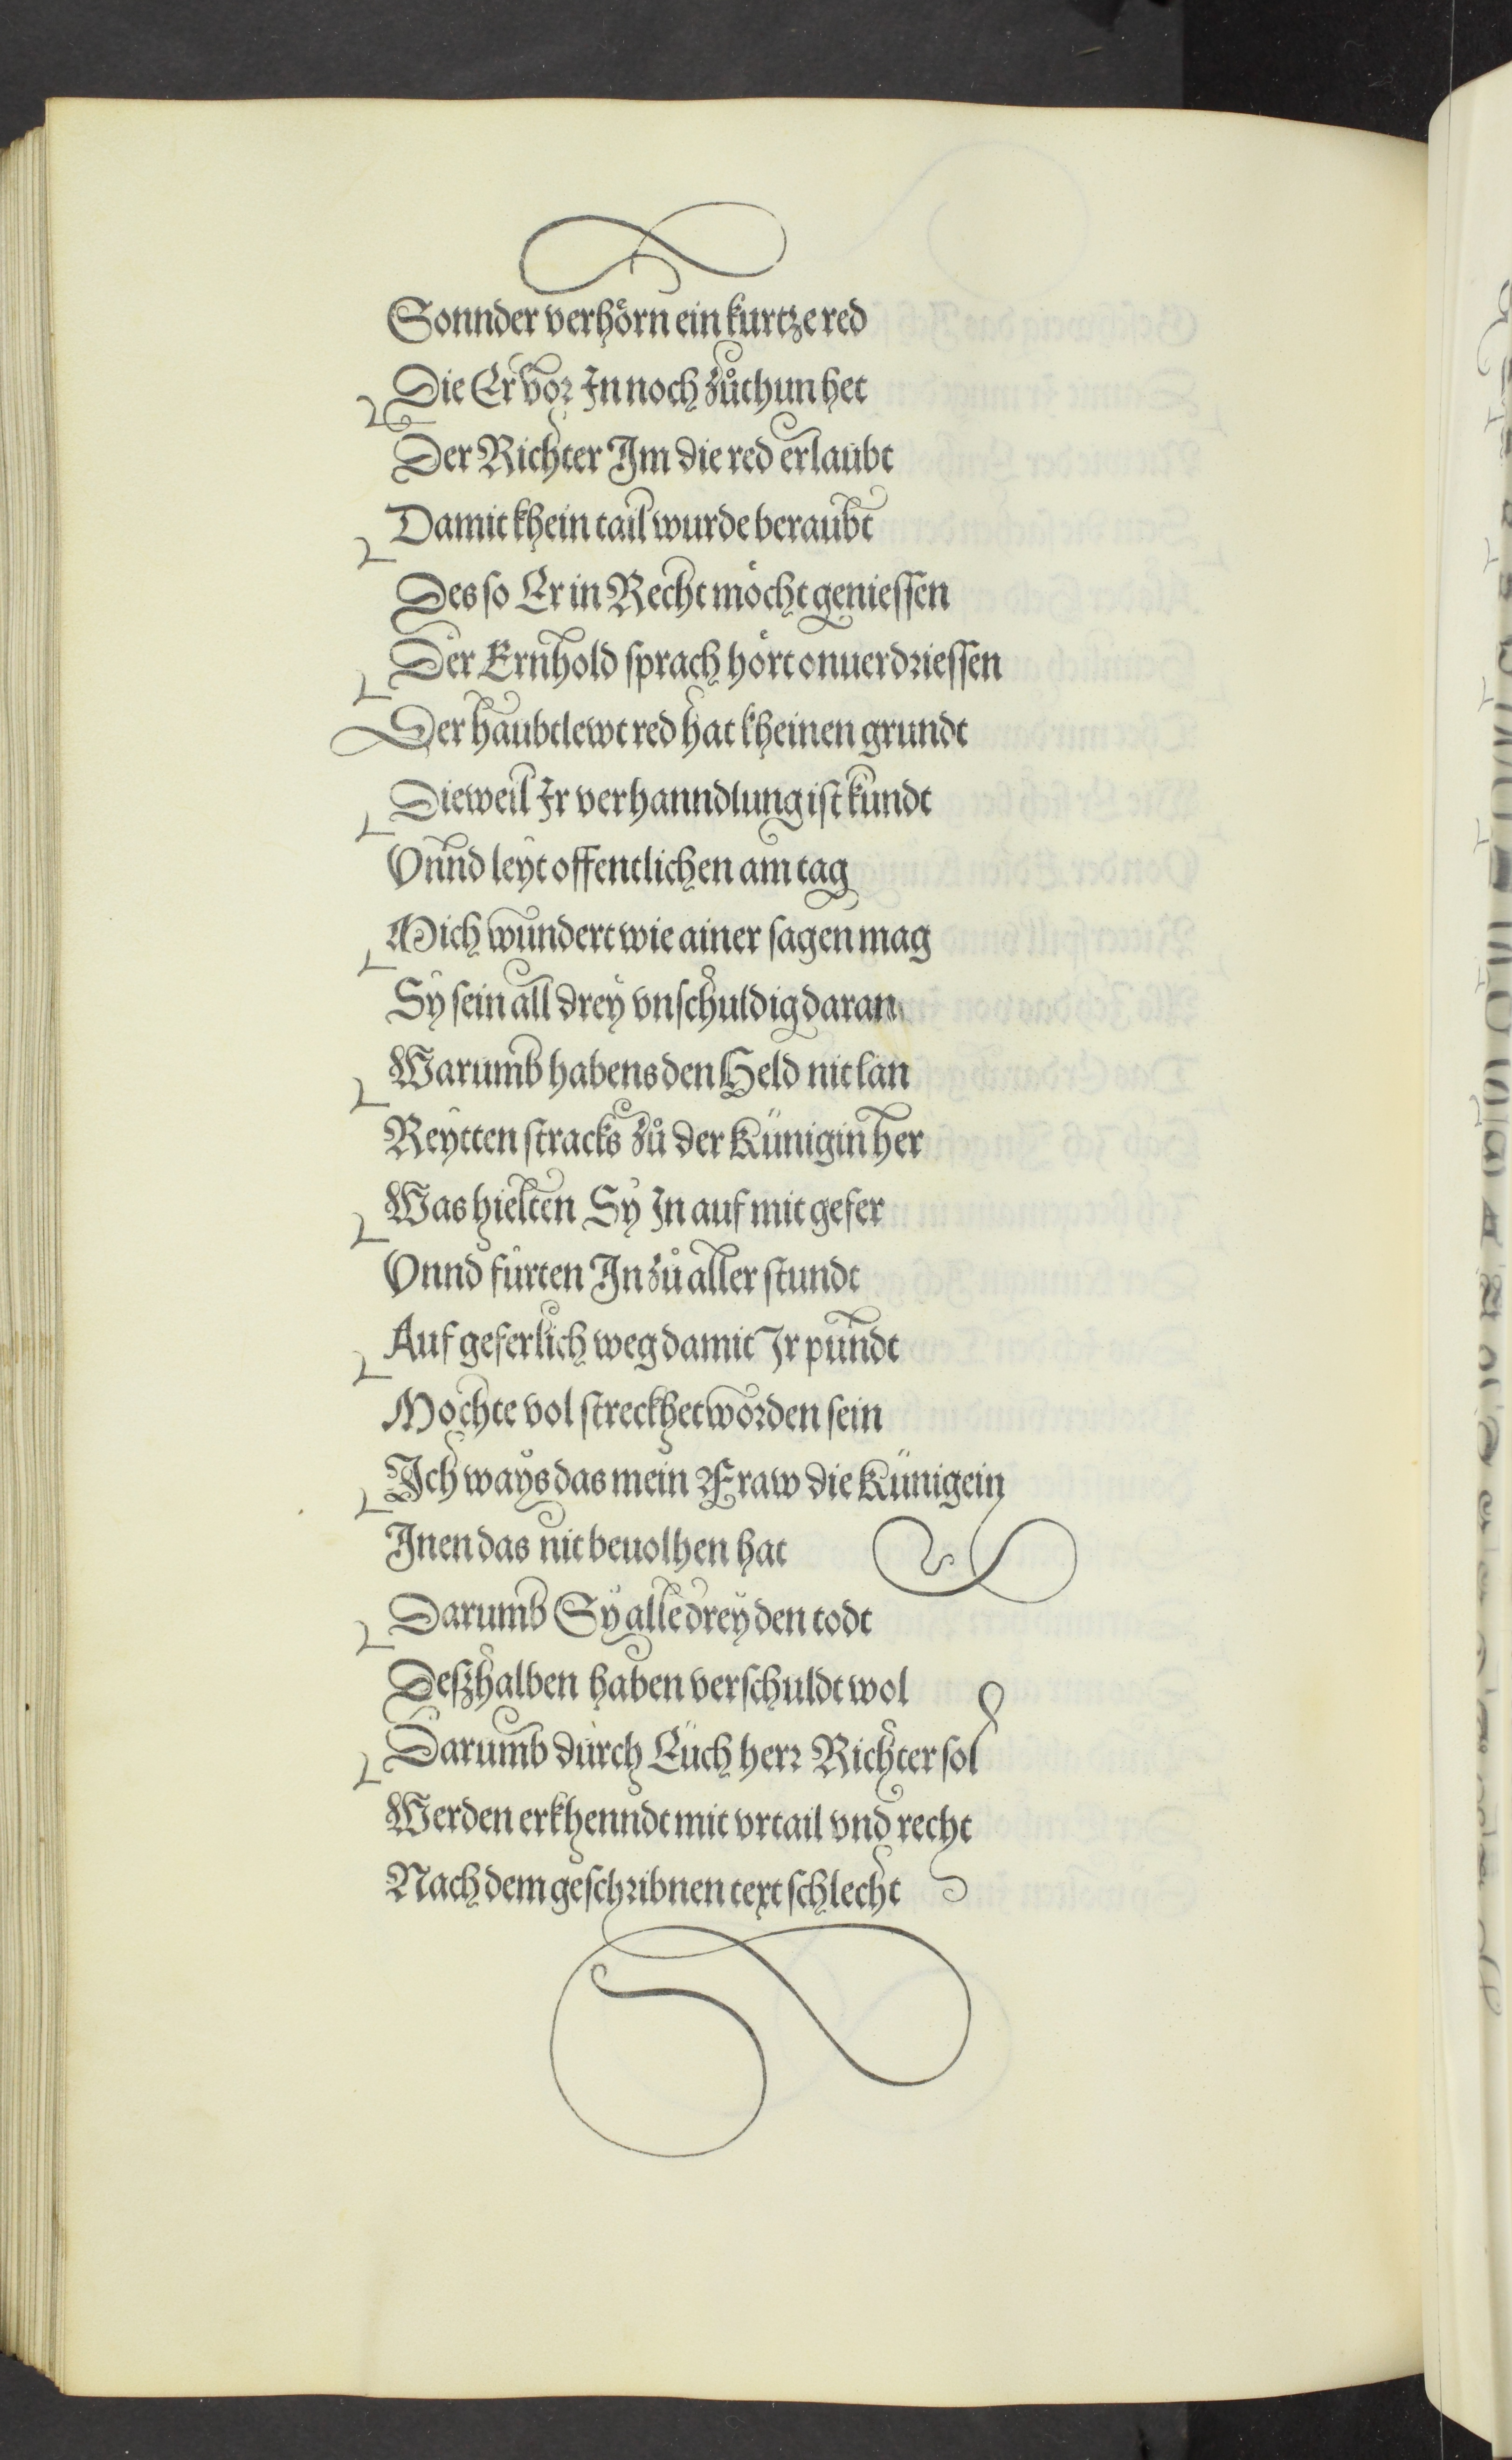 Sonnder verhörn ein kurtze red
Die Er vor In noch zůthun het
Der Richter Im die red erlaubt
Damit khein tail wurde beraubt
Des so Er in Recht möcht geniessen
Der Ernhold sprach hört onuerdriessen
Der haubtlewt red hat kheinen grundt
Dieweil Ir verhanndlung ist kundt
Vnnd leyt offentlichen am tag
Mich wundert wie ainer sagen mag
Sy sein all drey vnschuldig daran
Warumb habens den Held nit lan
Reytten stracks zů der Künigin her
Was hielten Sy In auf mit gefer
Vnnd fürten In zů aller stundt
Auf geferlich weg damit Ir pundt
Mochte volstreckhet worden sein
Ich ways das mein Fraw die Künigein
Inen das nit beuolhen hat
Darumb Sy alle drey den todt
Deßhalben haben verschuldt wol
Darumb durch Euch herr Richter sol
Werden erkhenndt mit vrtail vnd recht
Nach dem geschribnen text schlecht